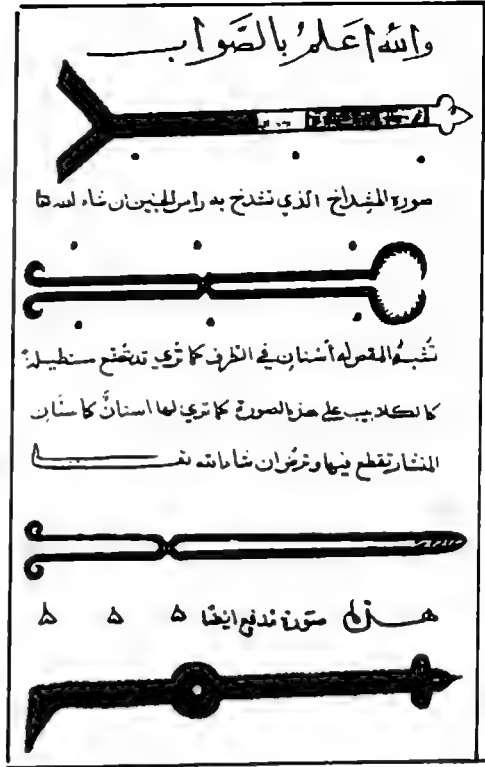 والله اعلم بالصواب
صورة المشداخ الذي تشدخ به راس الجنين ان شاء الله
تشبه المقص له أسنان في الطرف كما تري قد تصنع مستطيلة
كالكلاليب على هذه الصورة كما تري لها اسنان كاسنان
المنشار تقطع فيها وترض ان شاء الله تعلى
صورة مدفع ايضا